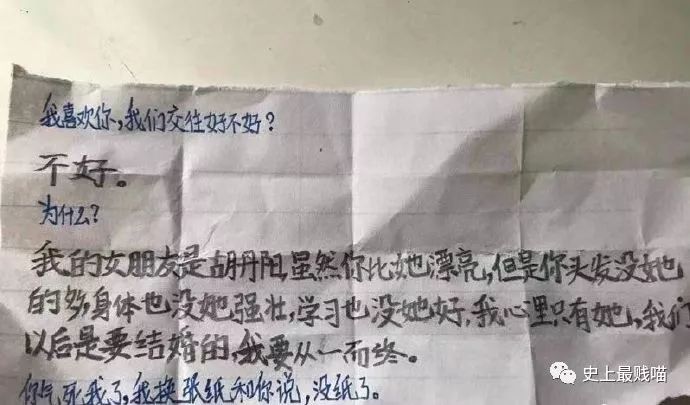 我喜欢你,我们交往好不好?
不好。
为什么?
我的女朋友是胡丹阳,虽然你比她漂亮,但是你头发没她
的多,身体也没她强壮,学习也没她好,我心里只有她,我们
以后是要结婚的,我要从一而终。
你气死我了,我换张纸和你说,没纸了。
史上最贱喵